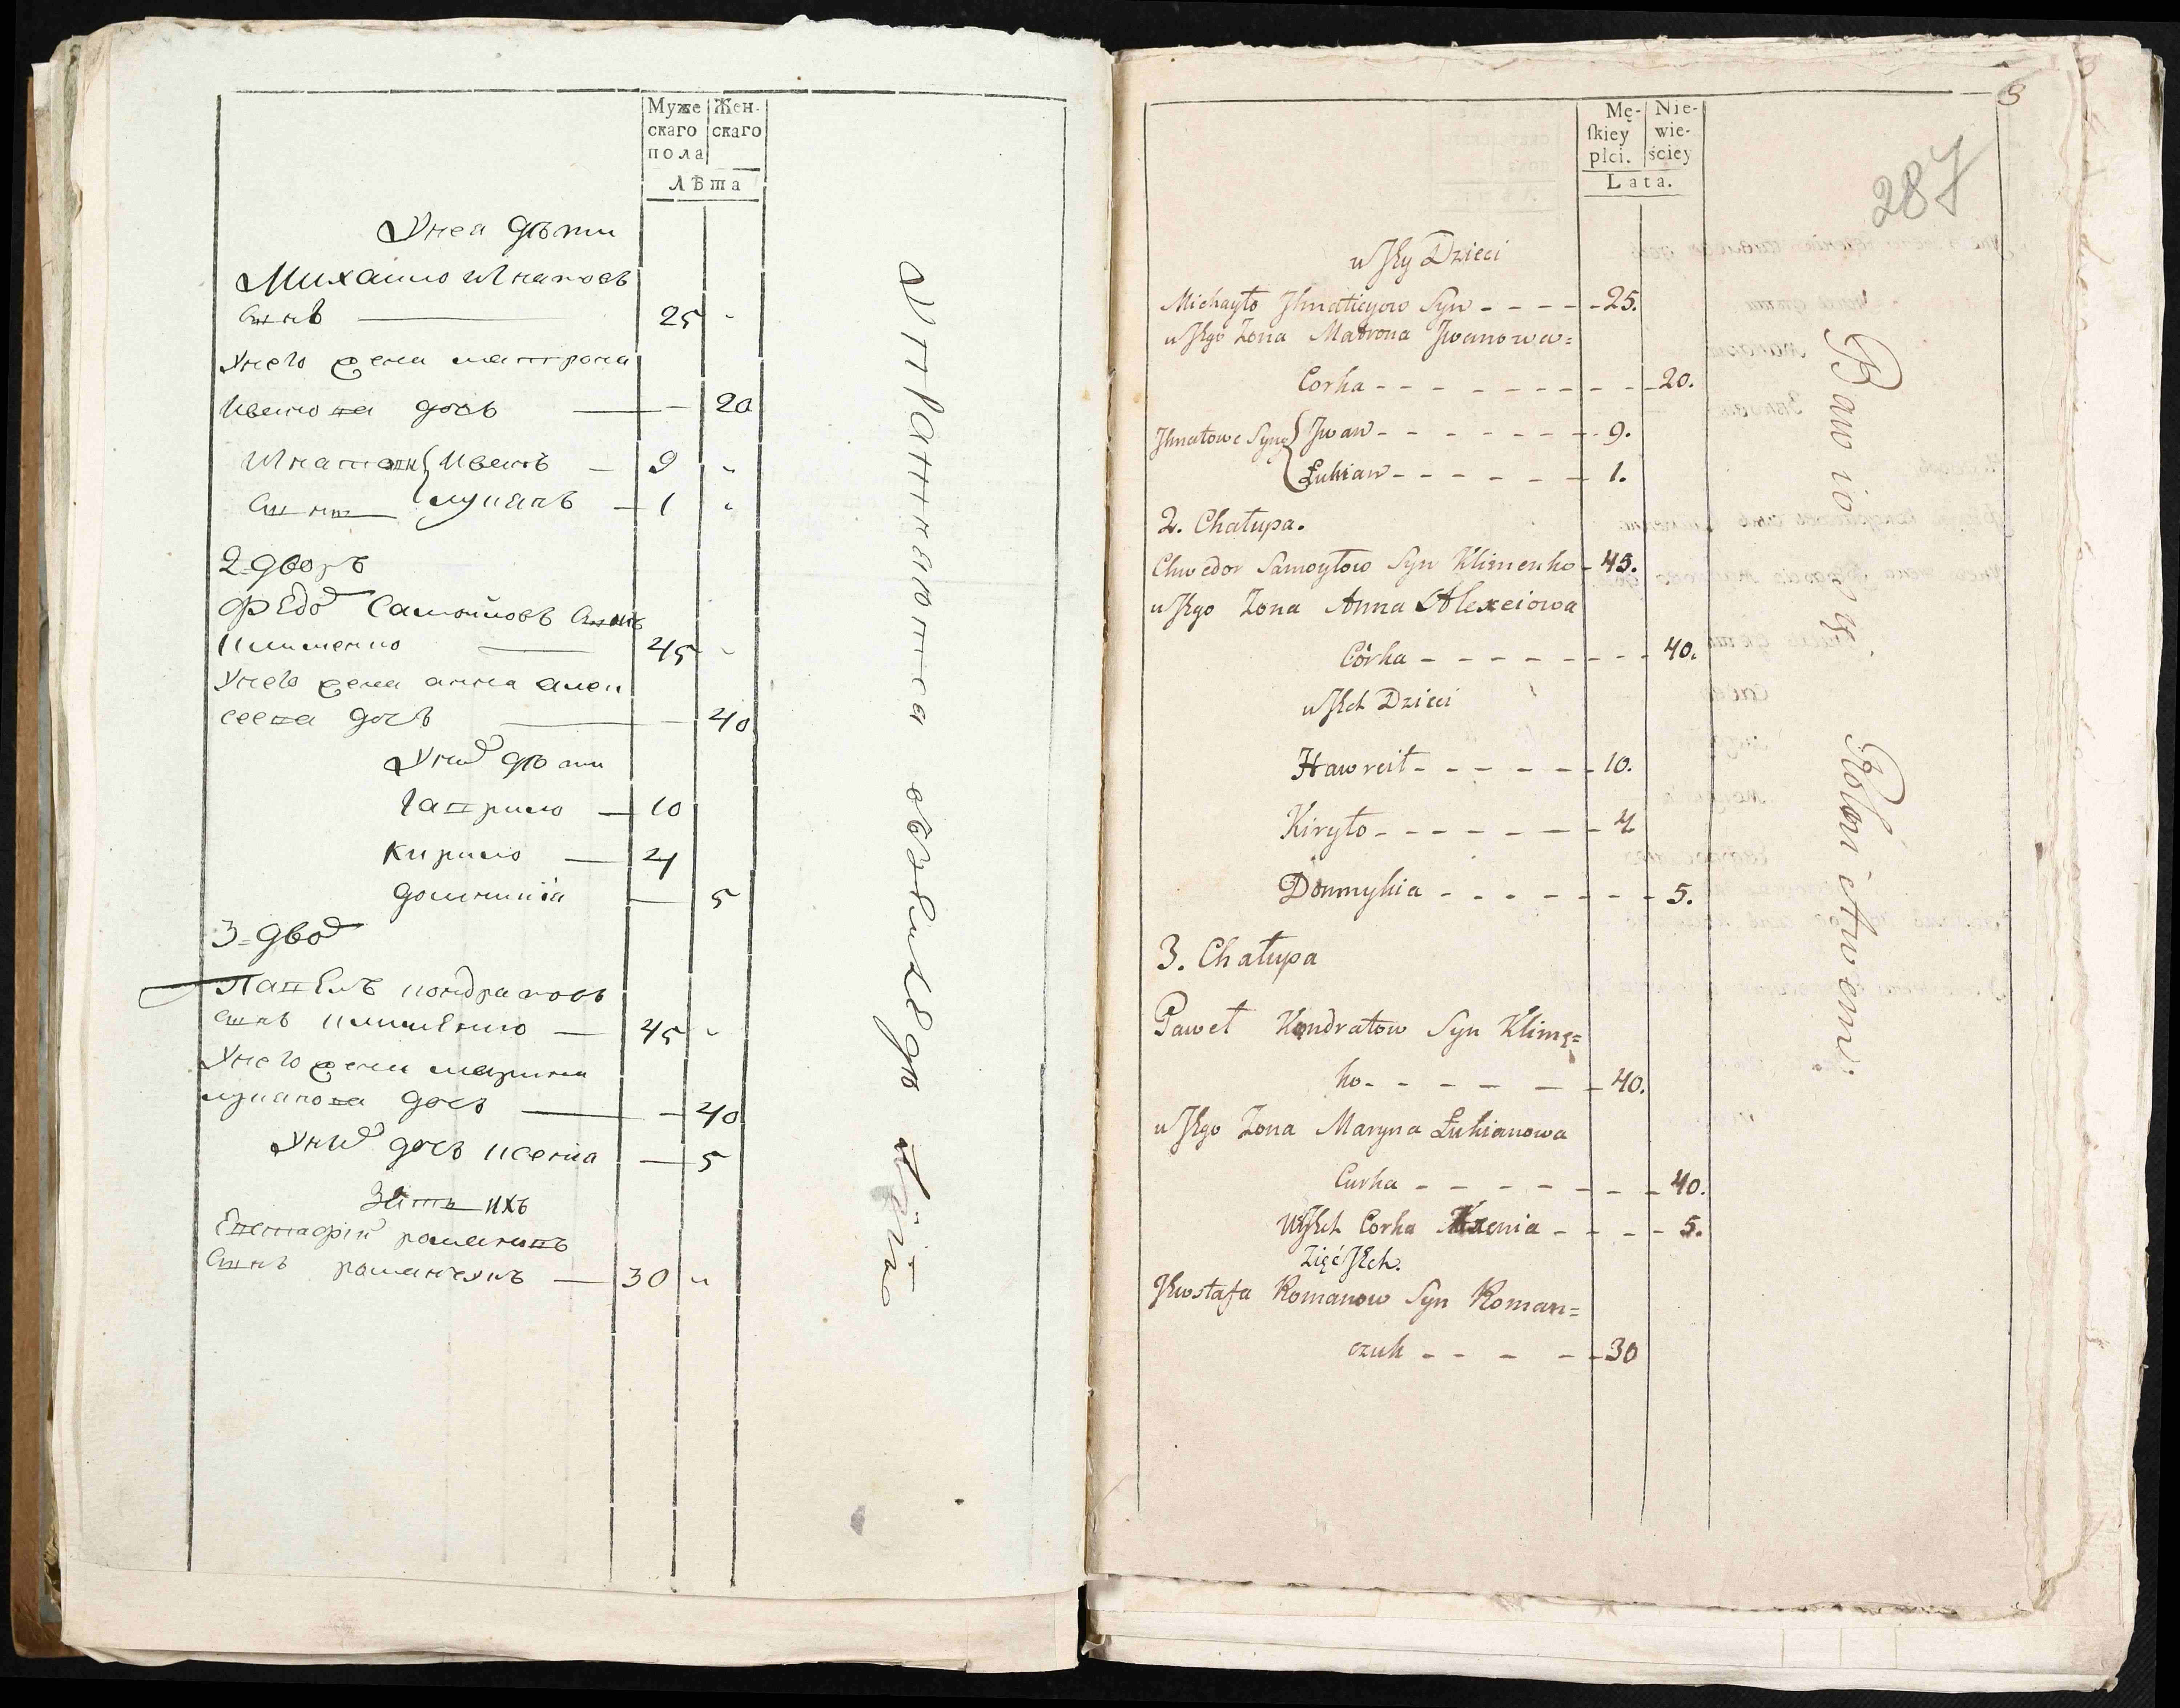 Муже Жен-
скаго скаго
пола
Лѣта
Унея дѣти
Михайло игнатовъ
сынъ 25
Унего жена матрона
иванова дочь 20
Игнатовы { иванъ 9
сыны { лукянъ 1
2 дворъ
Федор Самойловъ сынъ
клименко 45
Унего жена анна алек
сеева дочь 40
Уних дѣти
гаврило 10
кирило 4
домникия 5
3 двор
Павелъ кондратовъ
сынъ клименко 45
Унего жена марина
лукянова дочь 40
Уних дочь ксения 5
Зять ихъ
Евстафій романовъ
сынъ романчукъ 30
упражняются въ
8
287
Mę- Nie-
skiey wie-
płci. ściey
Lata.
u Jey Dzieci
Michayło Jhnaticyow Syn 25.
u Jego Zona Matrona Jwanowa=
Corka 20.
Jhnatowe Syny { Jwan 9.
{ Łukian 1.
2. Chałupa.
Chwedor Samoyłow Syn Klimenko 45.
u Jego Zona Anna Alexeiowa
Córka 40.
u Jch Dzieci
Hawreił 10.
Kiryło 4
Domnykia 5.
3. Chałupa
Paweł Kondratow Syn Klimę=
ko 40.
u Jego Zona Maryna Łukianowa
Curka 40.
U Jch Corka Kxenia 5.
Zięć Jch.
Jewstafa Romanow Syn Roman=
czuk 30
Bawio się Rolnictwem.